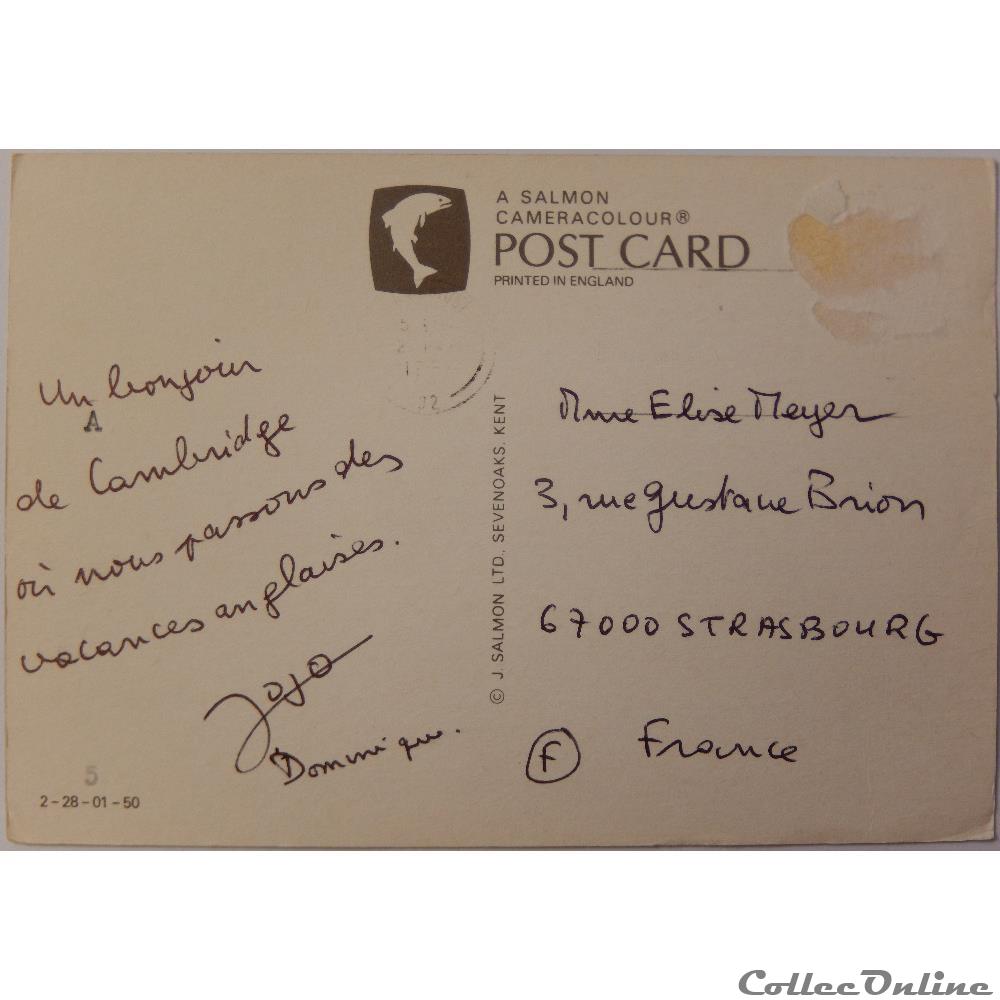 A SALMON
CAMERACOLOUR®
POST CARD
PRINTED IN ENGLAND
Un bonjour
A
de Cambridge
où nous passons des
vacances anglaises.
Jojo
Dominique.
5
2-28-01-50
© J. SALMON LTD. SEVENOAKS. KENT
Mme Elise Meyer
3, rue Gustave Brion
67000 STRASBOURG
F France
CollecOnline